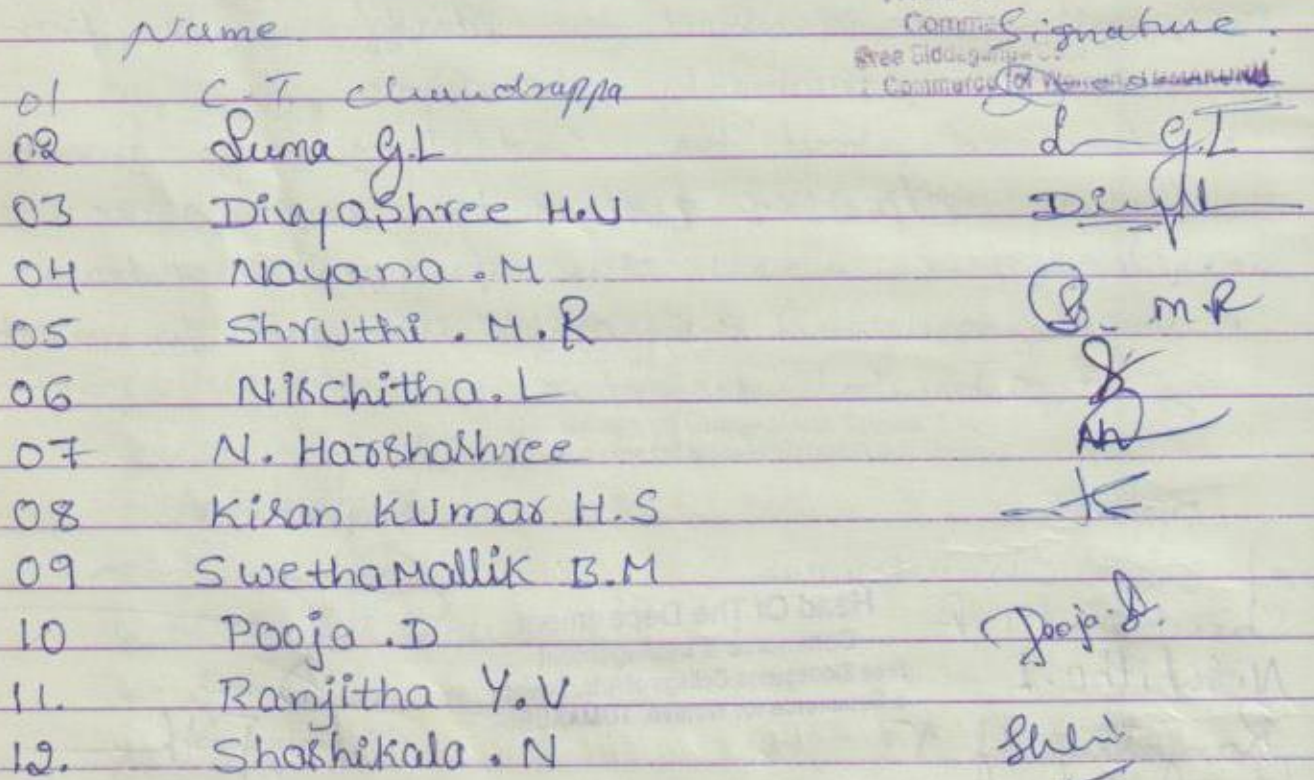 Name Signature.
01 C.T. Chandrappa
02 Suma G.L G.L
03 Divyashree H.U
04 Nayana .M
05 Shruthi . M.R S. M R
06 Nischitha. L
07 N. Harshashree
08 Kiran Kumar H.S
09 Swetha Mallik B.M
10 Pooja .D Pooja.D.
11. Ranjitha Y.V
12. Shashikala . N